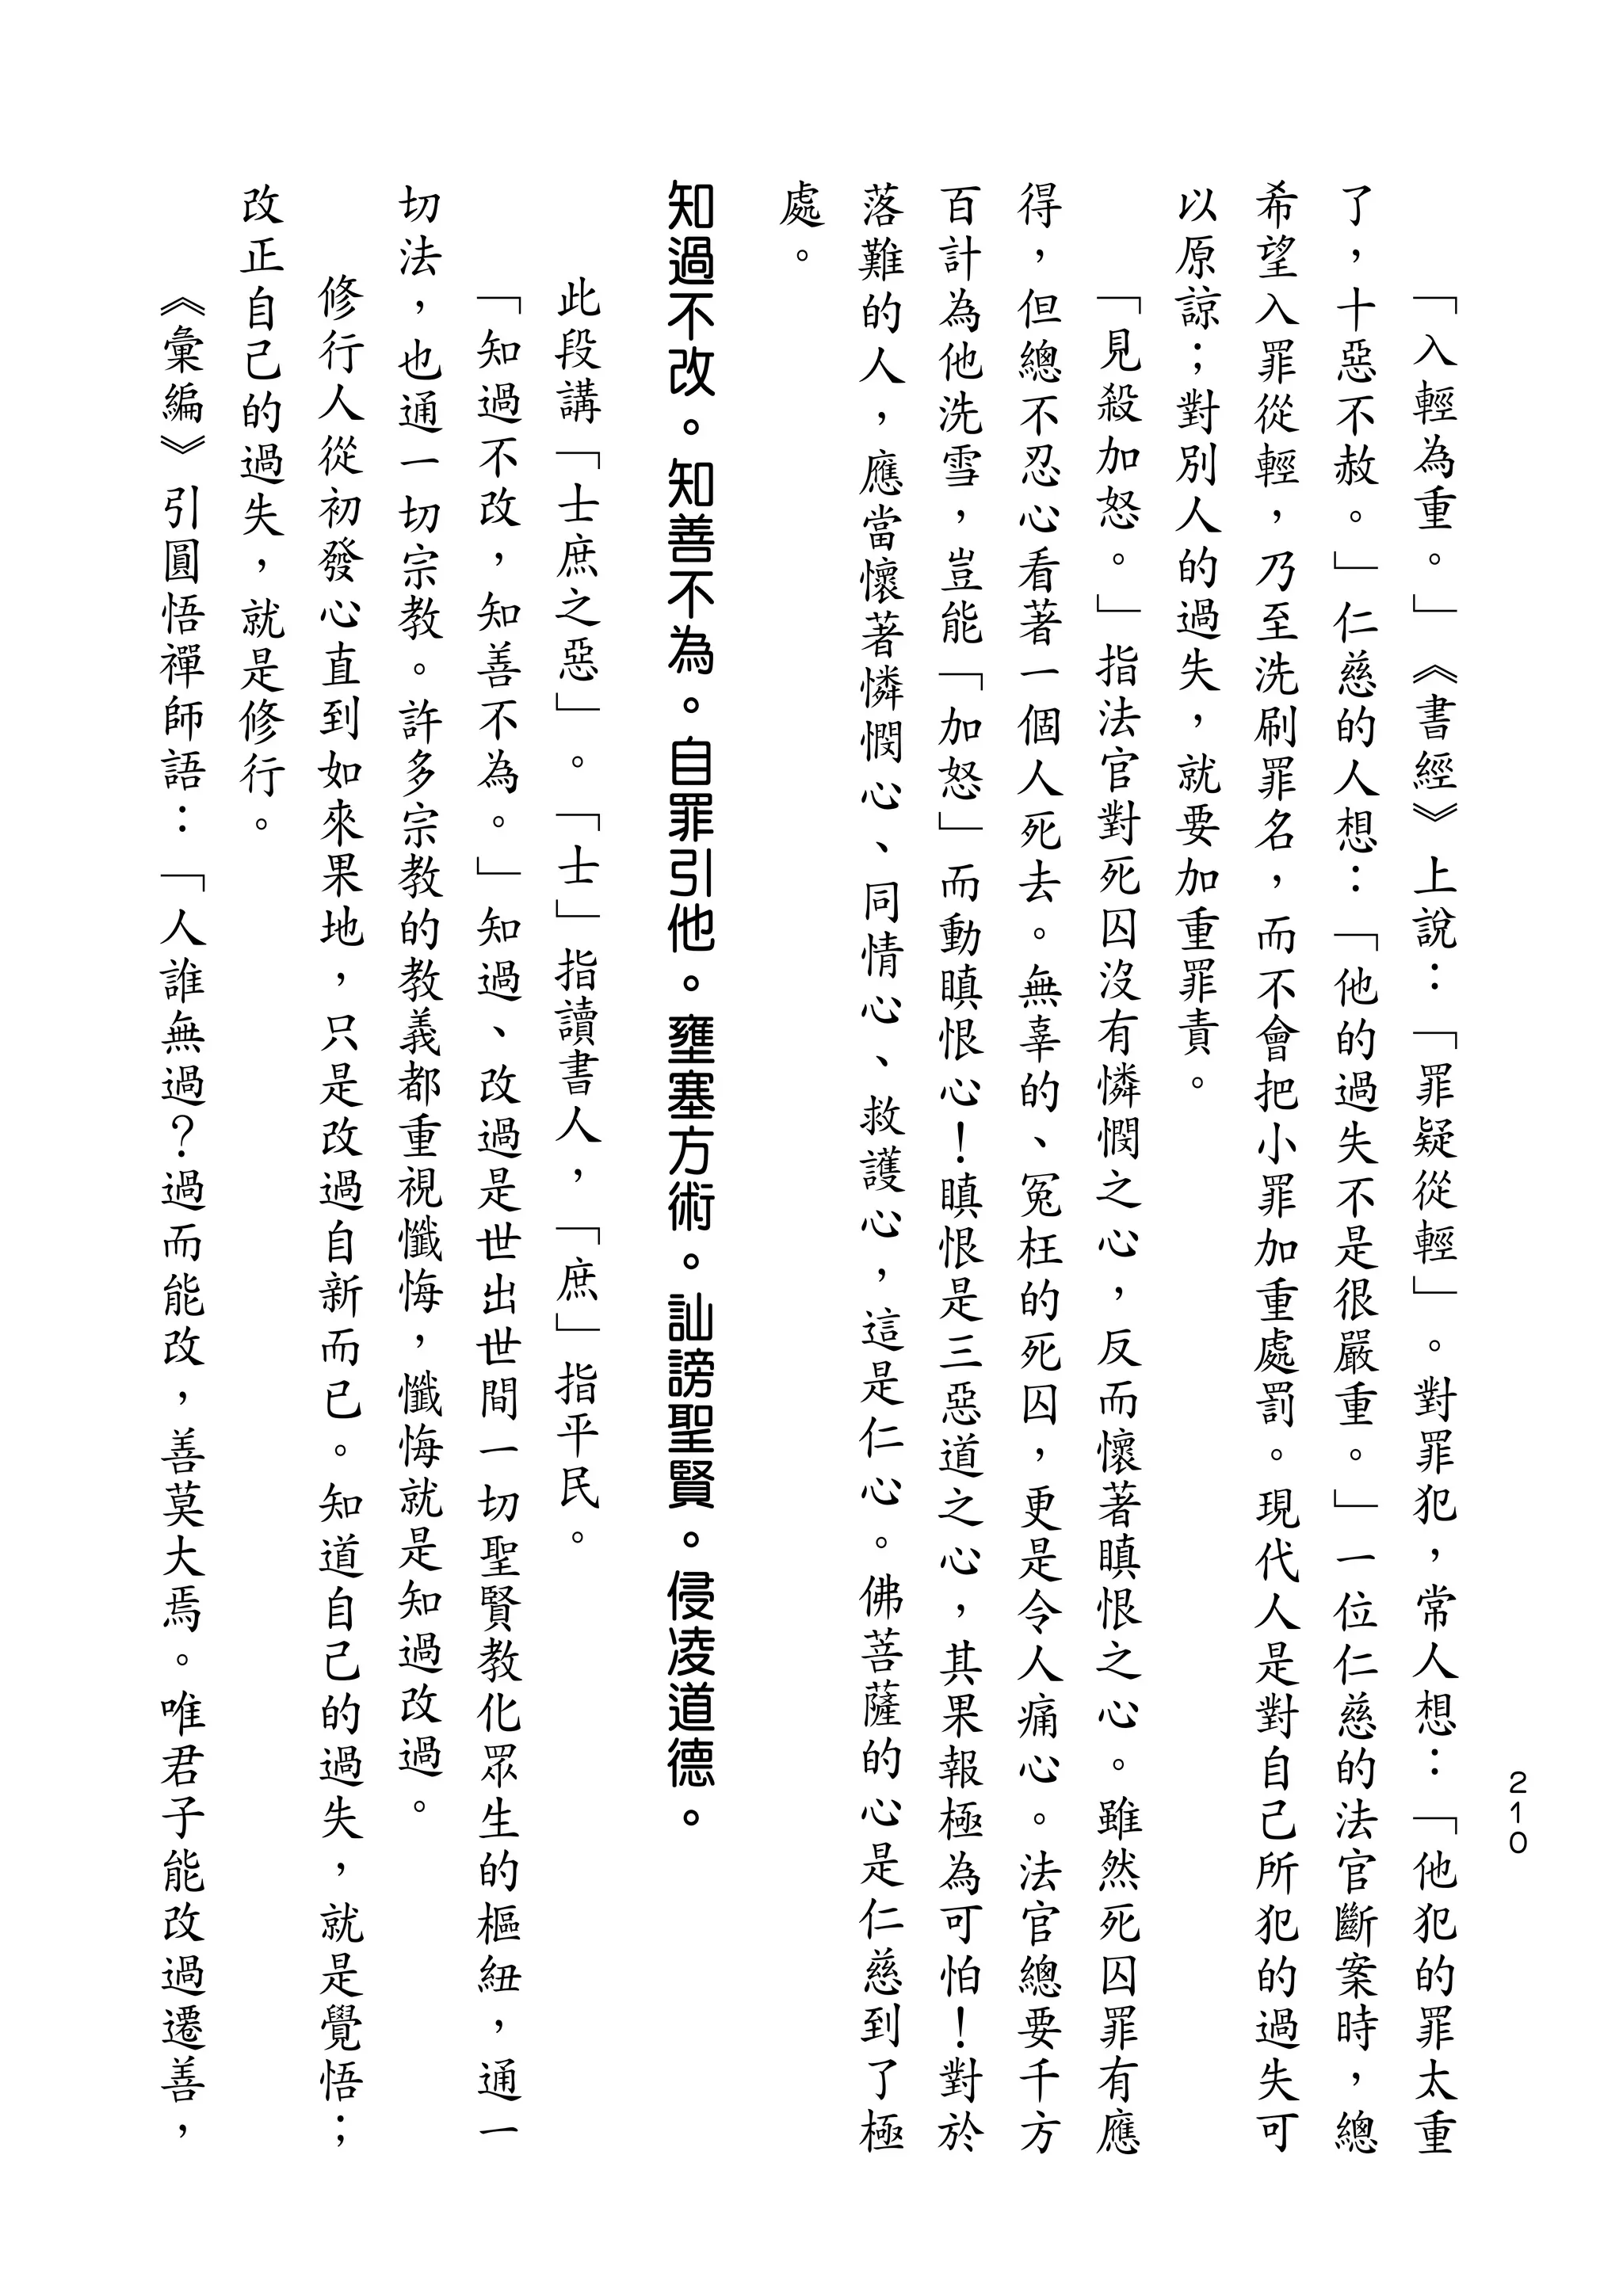 「入輕為重。」《書經》上說：「罪疑從輕」。對罪犯，常人想：「他犯的罪太重
了，十惡不赦。」仁慈的人想：「他的過失不是很嚴重。」一位仁慈的法官斷案時，總
希望入罪從輕，乃至洗刷罪名，而不會把小罪加重處罰。現代人是對自己所犯的過失可
以原諒；對別人的過失，就要加重罪責。
「見殺加怒。」指法官對死囚沒有憐憫之心，反而懷著瞋恨之心。雖然死囚罪有應
得，但總不忍心看著一個人死去。無辜的、冤枉的死囚，更是令人痛心。法官總要千方
百計為他洗雪，豈能「加怒」而動瞋恨心！瞋恨是三惡道之心，其果報極為可怕！對於
落難的人，應當懷著憐憫心、同情心、救護心，這是仁心。佛菩薩的心是仁慈到了極
處。
知過不改。知善不為。自罪引他。壅塞方術。訕謗聖賢。侵凌道德。
此段講「士庶之惡」。「士」指讀書人，「庶」指平民。
「知過不改，知善不為。」知過、改過是世出世間一切聖賢教化眾生的樞紐，通一
切法，也通一切宗教。許多宗教的教義都重視懺悔，懺悔就是知過改過。
修行人從初發心直到如來果地，只是改過自新而已。知道自己的過失，就是覺悟；
改正自己的過失，就是修行。
《彙編》引圓悟禪師語：「人誰無過？過而能改，善莫大焉。唯君子能改過遷善，
210